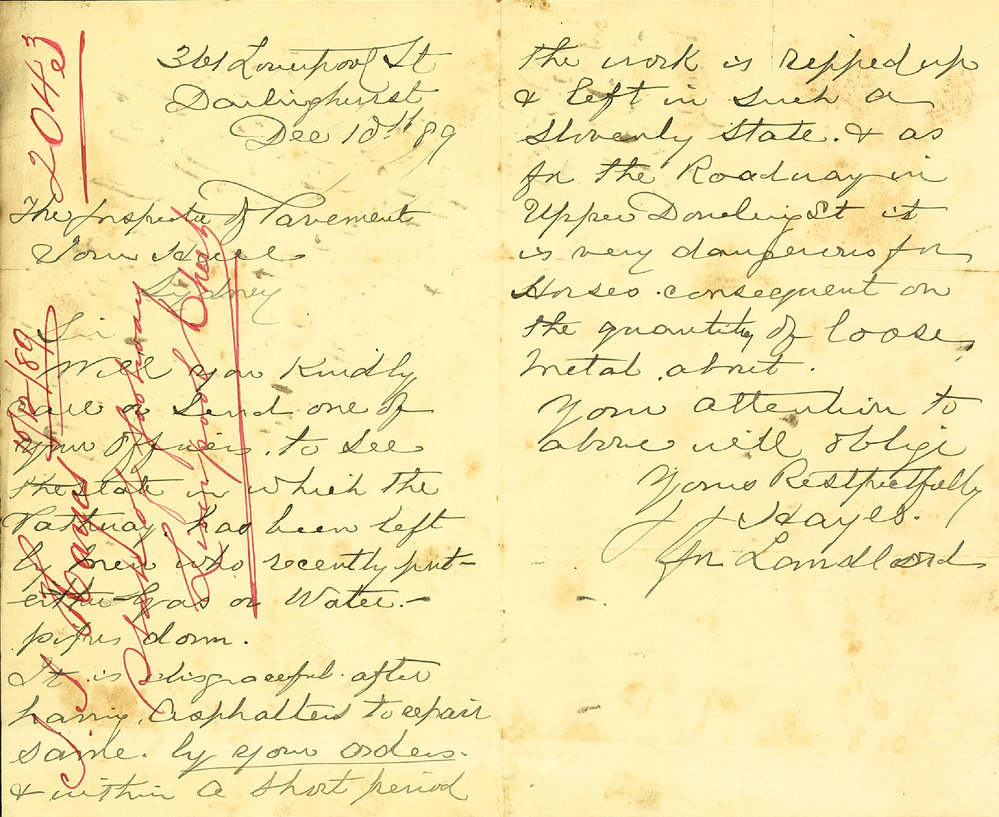 361 Liverpool St
Darlinghurst
Dec 10th/89
The Inspector of Pavements
Town Hall
Sydney
Sir
Will you Kindly
call or Send one of
your officers, to see
the state in which the
Pathway, has been left
by men who recently put
either Gas or Water
pipes down.
It is disgraceful after
having Asphalters to repair
same. by your orders.
& within a short period
the work is ripped up
& left in such a
slovenly state. & as
for the Roadway in
Upper Dowling St it
is very dangerous for
Horses. consequent on
the quantity of loose
metal about.
Your attention to
above will oblige
Yours Respectfully
J J Hayes.
for Landlord
2043
J. J. Hayes 10/12/89
State of footway
Liverpool Street